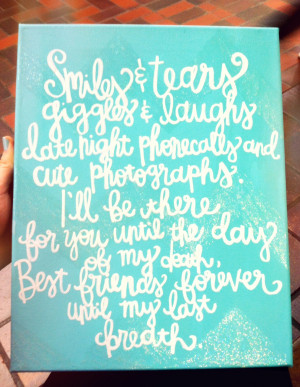 Smiles & tears
giggles & laughs
date night phonecalls and
cute photographs.
I'll be there
for you until the day
of my death,
Best friends forever
until my last
breath.